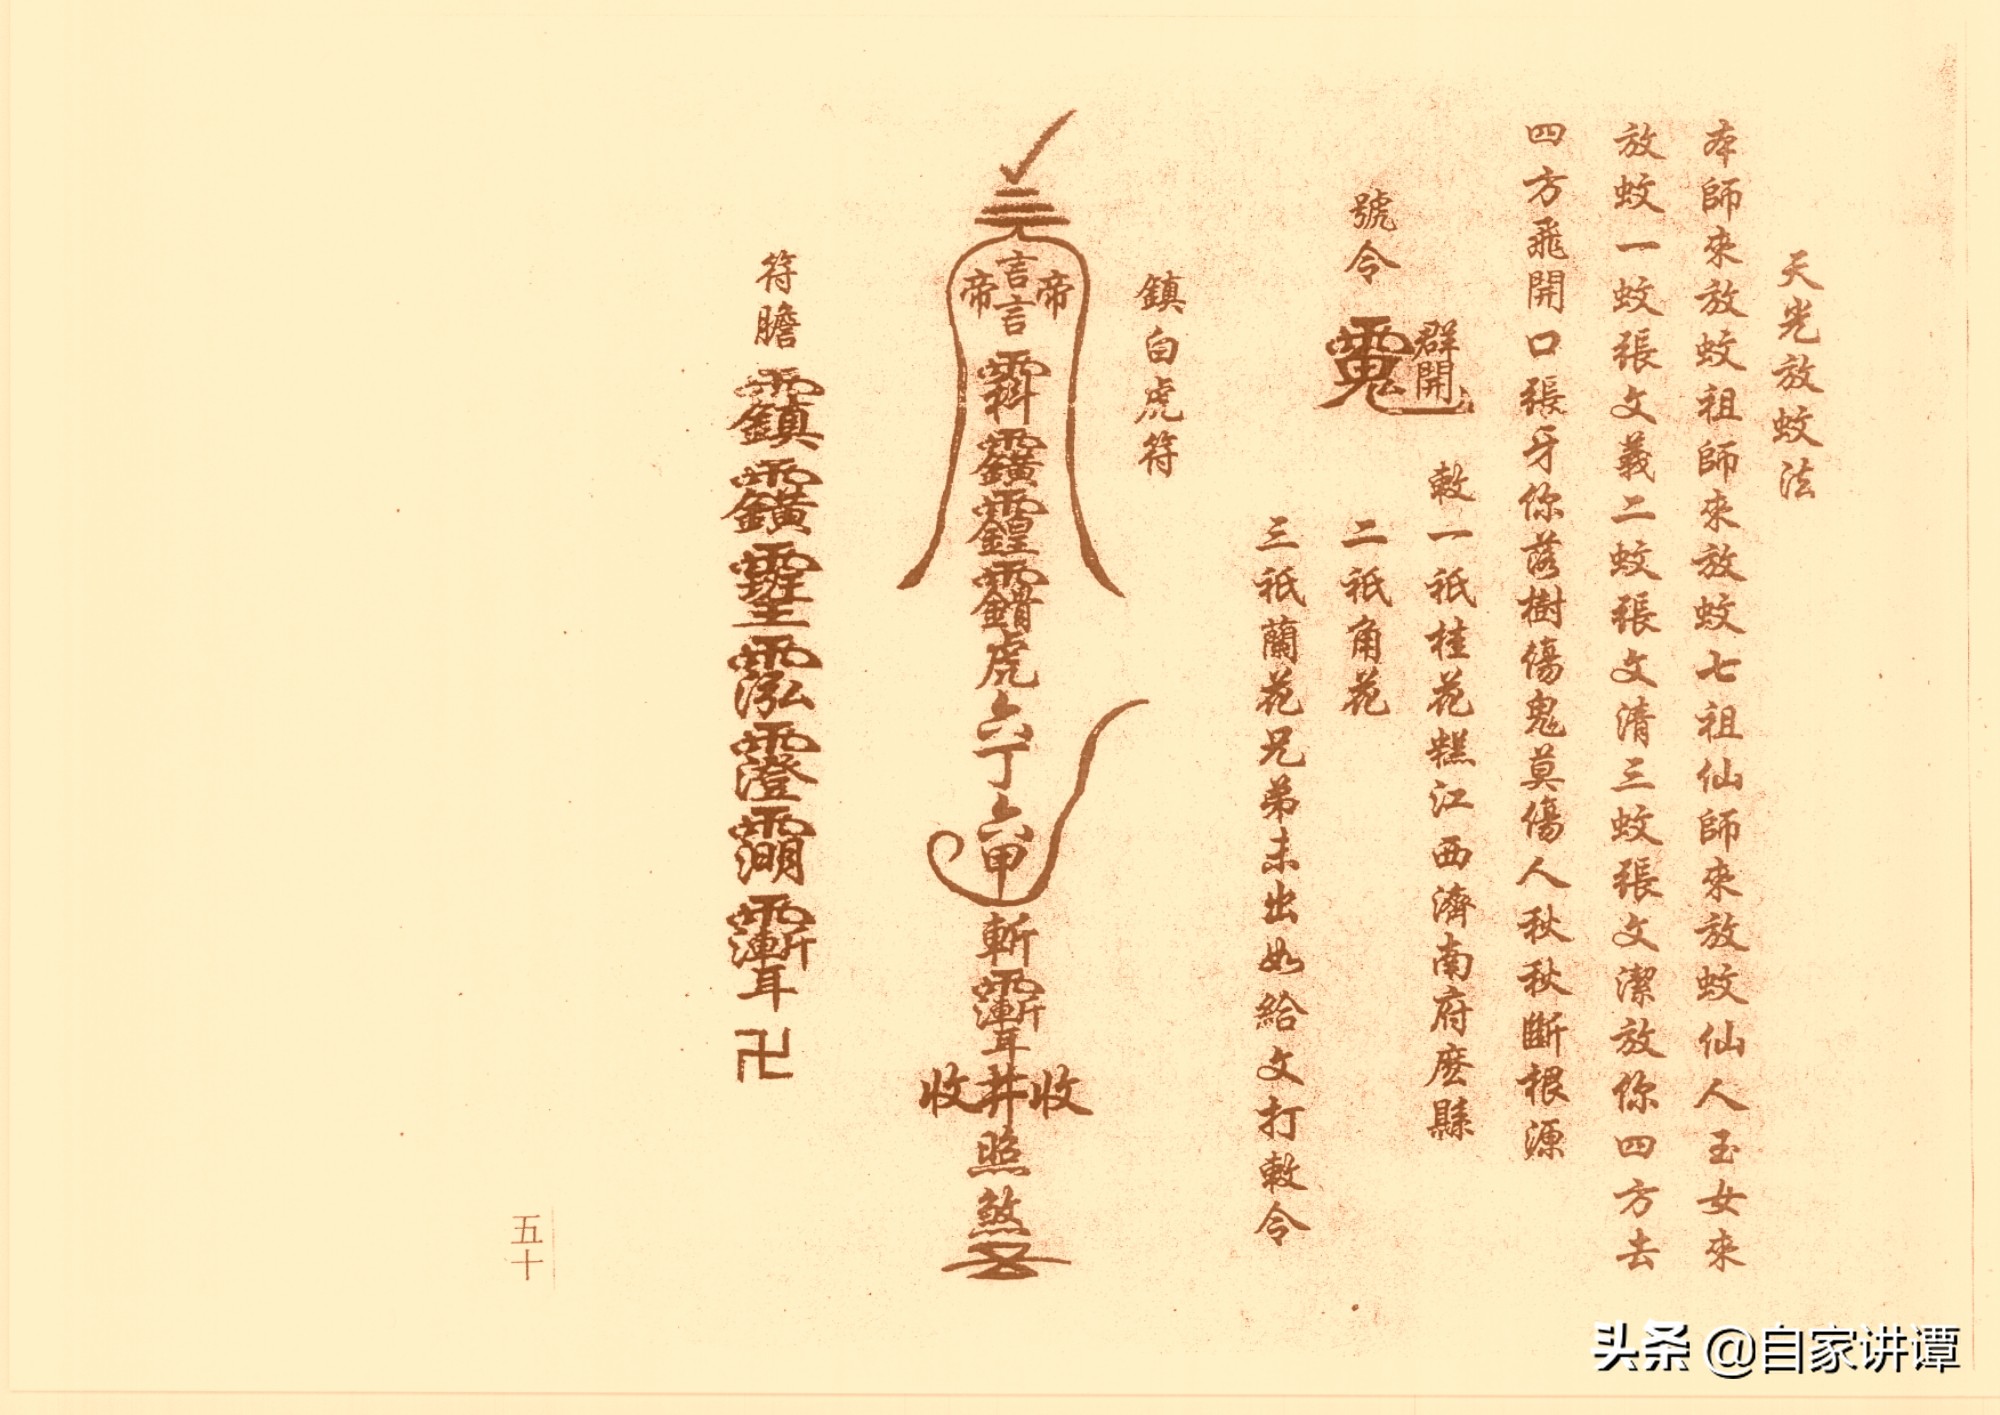 天光放蚊法
本師來放蚊祖師來放蚊七祖仙師來放蚊仙人玉女來
放蚊一蚊張文義二蚊張文清三蚊張文潔放你四方去
四方飛開口張牙你落樹傷鬼莫傷人秋秋斷根源
號令
群開
敕一祇桂花糕江西濟南府麼縣
二祇角花
三祇蘭花兄弟未出如給文打敕令
鎮白虎符
言言
帝 帝
虎六丁六甲斬
收井收
照煞
符膽
卍
五十
头条 @自家讲谭